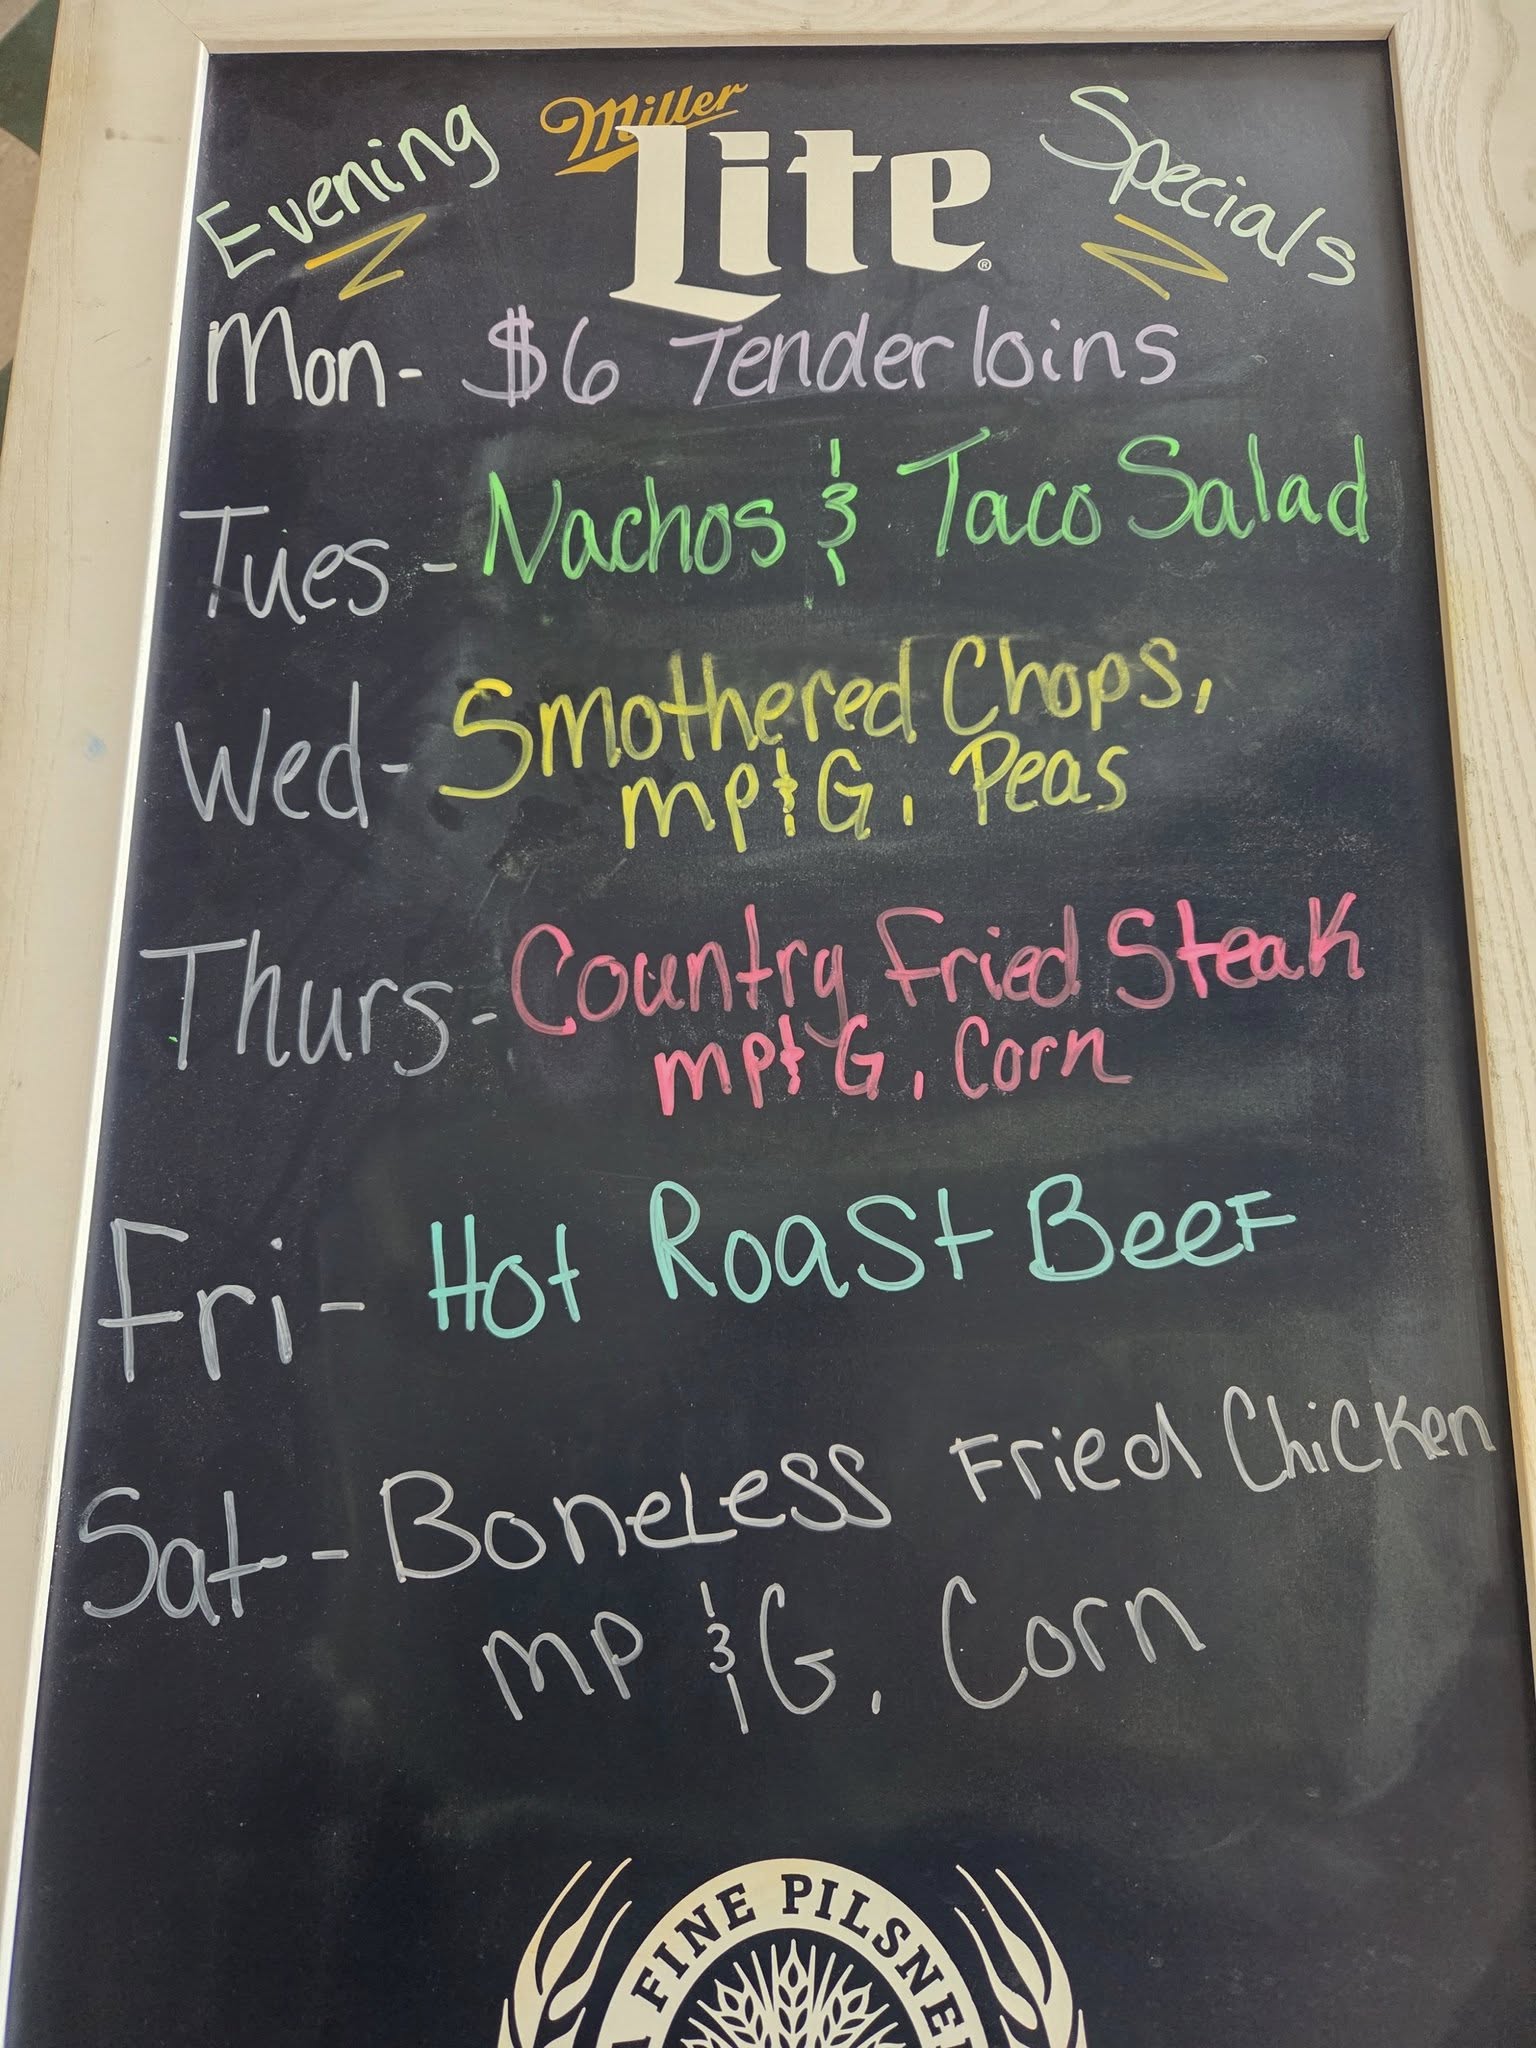 Evening Miller Lite® Specials
Mon- $6 Tenderloins
Tues- Nachos & Taco Salad
Wed- Smothered Chops,
mp & G, Peas
Thurs- Country Fried Steak
mp & G, Corn
Fri- Hot Roast Beef
Sat- Boneless Fried Chicken
mp & G, Corn
A FINE PILSNE